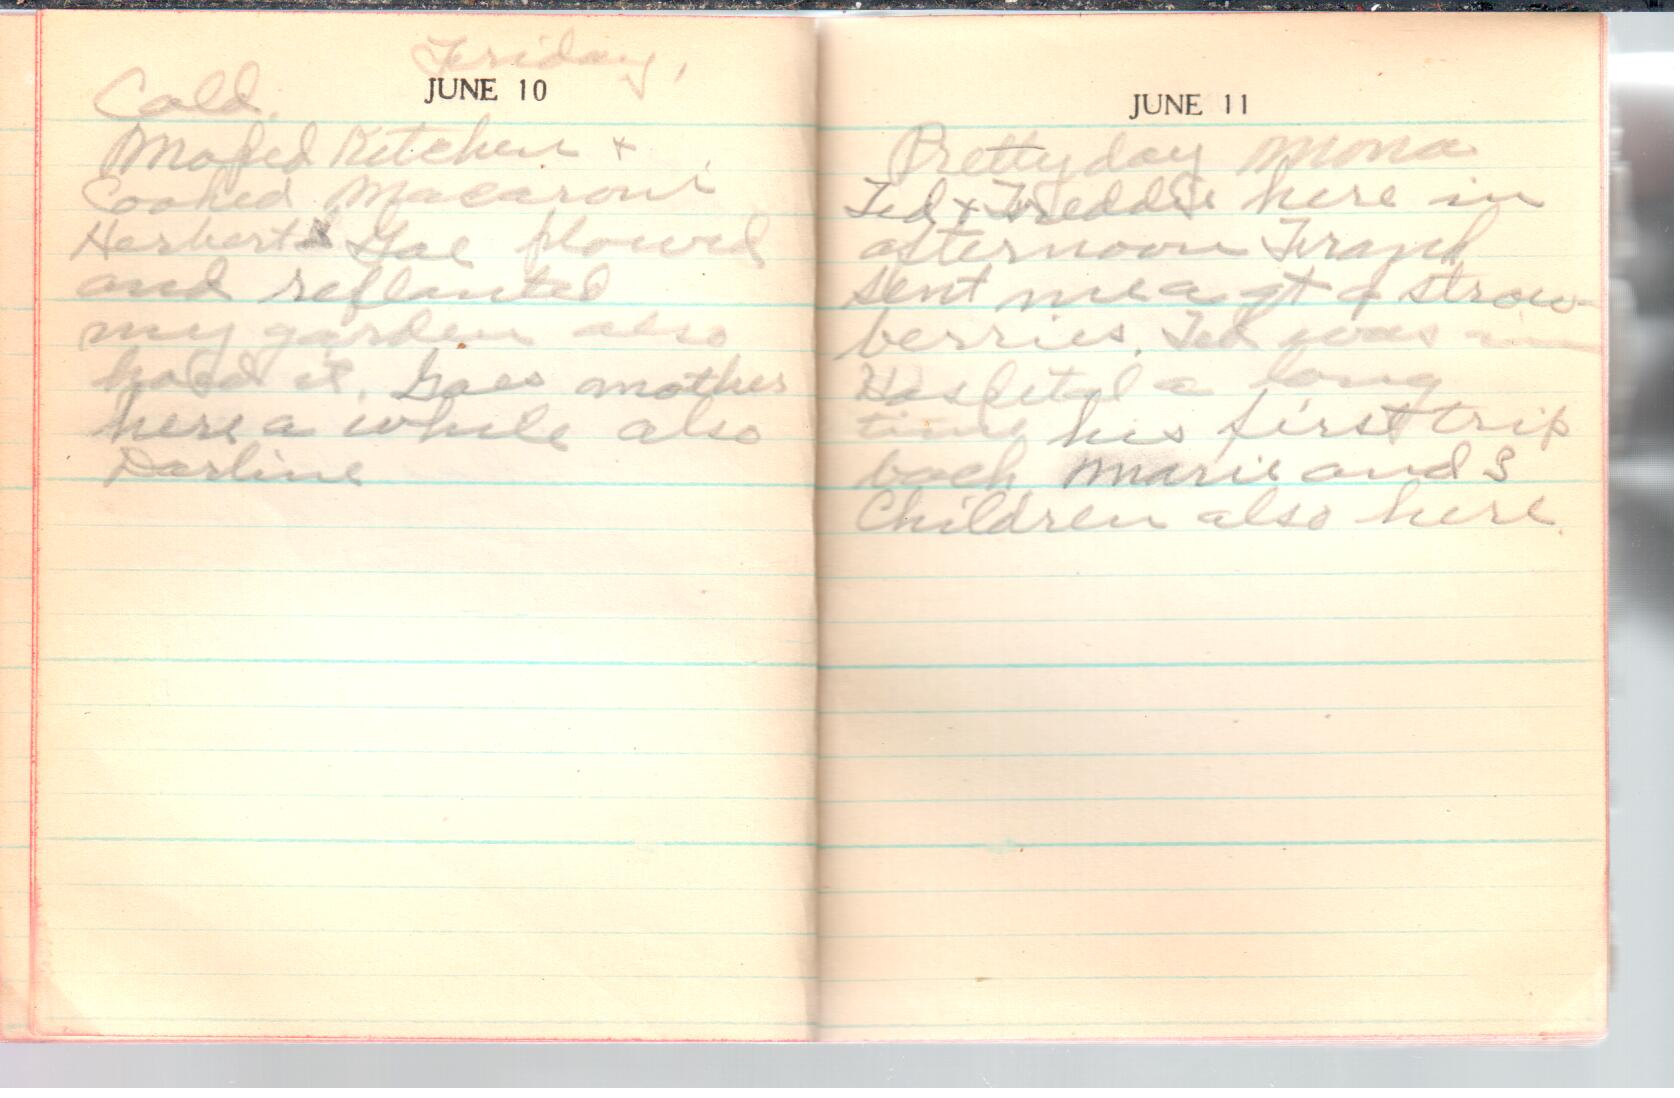 Friday,
JUNE 10
Cold.
Moped Kitchen +
Cooked Macaroni
Herbert & Gae plowed
and replanted
my garden also
hoed it. Gaes mother
here a while also
Darline
JUNE 11
Pretty day Mona
Ted + Freddie here in
afternoon Frank
sent me a qt of straw-
berries. Ted was in
Hospital a long
time his first trip
back Marie and 3
Children also here.